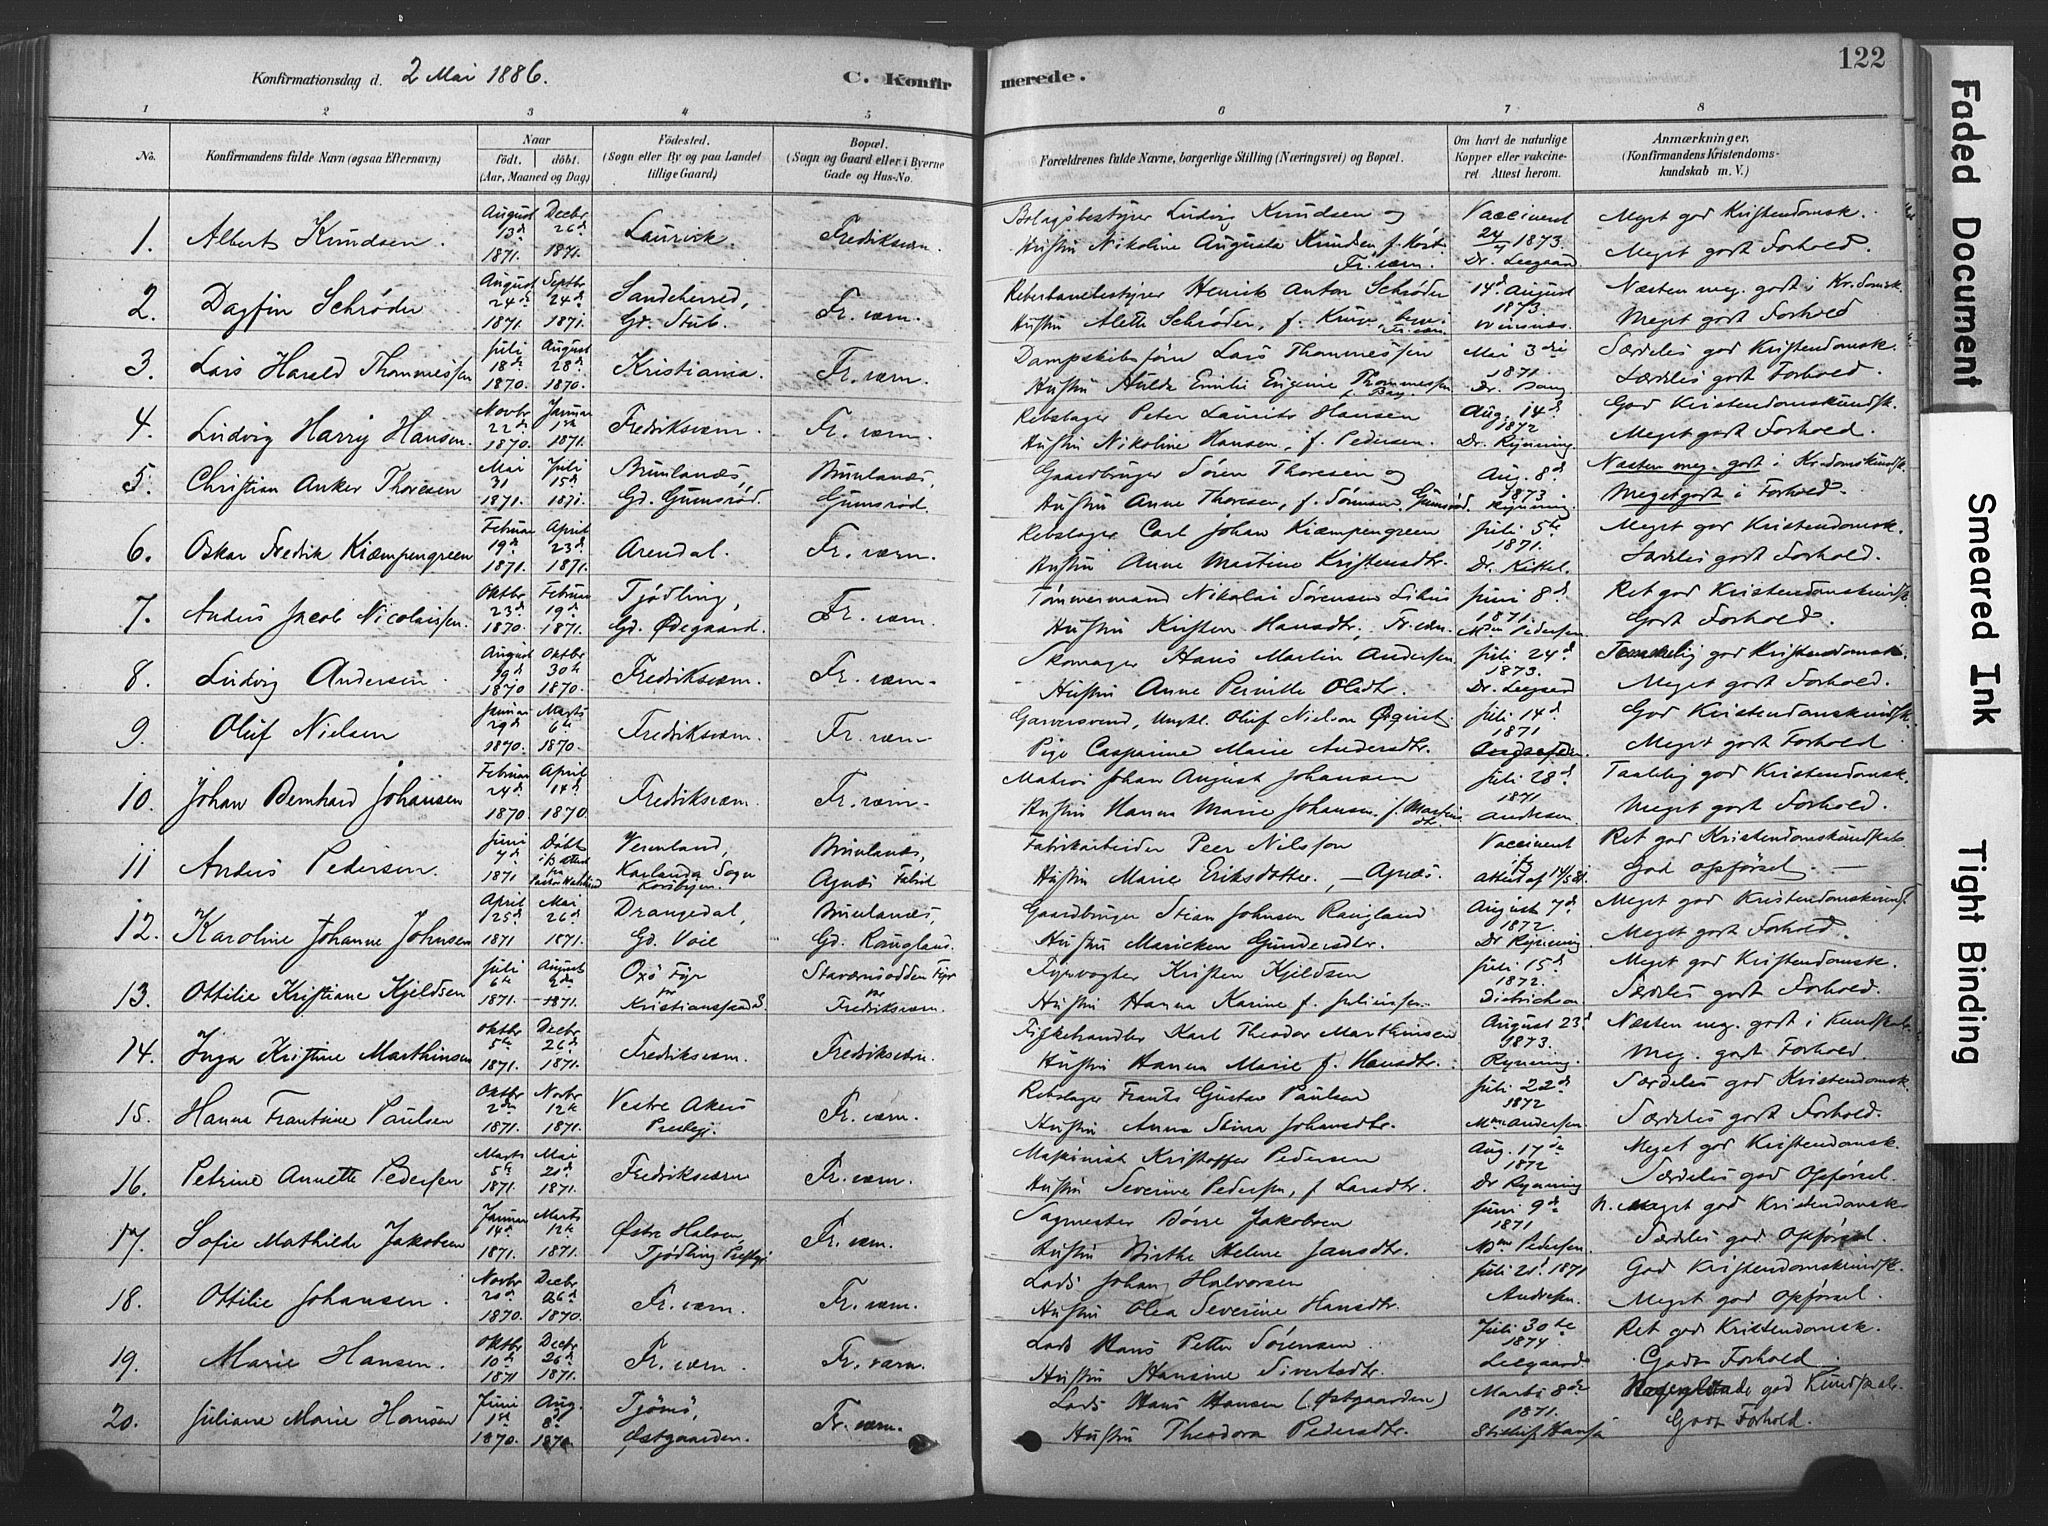 122
Konfirmationsdag d. 2 Mai 1886.
C. Konfirmerede.
1 2 3 4 5 6 7 8
No.
Konfirmandens fulde Navn (ogsaa Efternavn)
Naar
födt. döbt.
(Aar, Maaned og Dag)
Födested.
(Sogn eller By og paa Landet
tillige Gaard)
Bopæl.
(Sogn og Gaard eller i Byerne
Gade og Hus-No.
Forældrenes fulde Navne, borgerlige Stilling (Næringsvei) og Bopæl.
Om havt de naturlige
Kopper eller vakcine-
ret Attest herom.
Anmærkninger.
(Konfirmandens Kristendoms-
kundskab m. V.)
1. Alberts Knudsen. August 13de 1871. Decbr 26de 1871. Laurvik. Fredriksværn.
Ludvig Knudsen og
Hustru Nikoline Augusta Knudsen f.
Fr. værn.
Vaccineret 1873. Dr. Leegaard
Meget god Kristendomsk.
Meget godt Forhold.
2. Dagfin Schrøder August 24de 1871. Septbr 24de 1871. Sandeherred, Gd. Stub. Fr. værn.
Reberbanebestyrer Henrik Anton Schrøder
Hustru Aleth Schrøder, f.
14de August 1873
Næsten meg. godt i Kr.domsk.
Meget godt Forhold
3. Lars Harald Thommessen Juli 18de 1870. August 28de 1870. Kristiania. Fr. værn.
Dampskibsfører Lars Thommessen
Hustru Hulda Emilie Eugenie Thommessen
Mai 3die 1871. Dr.
Særdeles god Kristendomsk.
Særdeles godt Forhold.
4. Ludvig Harry Hansen. Novbr 22de 1870. Januar 1ste 1871. Fredriksværn. Fr. værn.
Rebslager Peter Lauritz Hansen
Hustru Nikoline Hansen, f. Pedersen.
Aug. 14de 1872 Dr. Rynning
God Kristendomskundsk.
Meget godt Forhold.
5. Christian Anker Thoresen Mai 31 1871. Juli 15de 1871. Brunlanæs, Gd. Gumsrød. Brunlanæs, Gumsrød.
Gaardbruger Sören Thoresen og
Hustru Anne Thoresen, f. Sörensen, Gumsrød.
Aug. 8de 1873 Rynning.
Næsten meg. godt i Kr.domskundsk.
Meget godt i Forhold.
6. Oskar Fredrik Kiæmpengreen Februar 19de 1871. April 23de 1871. Arendal. Fr. værn.
Rebslager Carl Johan Kiæmpengreen
Hustru Anne Martine Kristensdtr.
Juli 5te 1871. Dr. Kittel.
Meget god Kristendomsk.
Særdeles godt Forhold.
7. Anders Jacob Nicolaissen. Oktbr 23de 1870. Februar 19de 1871. Tjödling, Gd. Ødegaard. Fr. værn.
Tømmermand Nikolai Sörensen
Hustru Kristen Hansdtr, Fr. værn.
Juni 8de 1871. Mdm Pedersen
Ret god Kristendomskundsk.
Godt Forhold.
8. Ludvig Andersen. August 19de 1870 Oktbr 30te 1870. Fredriksværn. Fr. værn.
Skomager Hans Martin Andersen
Hustru Anne Pernille Olsdtr.
Juli 24de 1873. Dr. Leegaard
Temmelig god Kristendomsk.
Meget godt Forhold.
9. Oluf Nielsen Januar 29de 1870. Marts 6te 1870. Fredriksværn. Fr. værn
Garversvend, Ungkl. Oluf Nielsen Øqvist.
Pige Casparine Marie Andersdtr.
Juli 14de 1871
God Kristendomskundsk.
Meget godt Forhold
10. Johan Bernhard Johansen Februar 24de 1870 April 14de 1870. Fredriksværn. Fr. værn.
Matros Johan August Johansen
Hustru Hanna Marie Johansen, f.
Juli 28de 1871 Andresen
Taalelig god Kristendomsk.
Meget godt Forhold.
11 Anders Pedersen. Juni 7de 1871 Döbt Vermland, Karlanda Sogn Brunlanæs, Agnæs Fabrik
Fabrikarbeider Peer Nilsson
Hustru Marie Eriksdatter, — Agnæs.
Vaccineret attest af 14/5 81.
Ret god Kristendomskundskab.
God Opførsel. —
12. Karoline Johanne Johnsen April 25de 1871 Mai 26de 1871. Drangedal, Gd. Voie Brunlanæs, Gd. Rougland.
Gaardbruger Stian Johnsen Raugland
Hustru Maricken Gundersdtr.
August 7de 1872. Dr Rynning
Meget god Kristendomskundsk
Meget godt Forhold.
13. Ottilie Kristiane Kjeldsen Juli 6te 1871. August 2de 1871. Oxö Fyr pr Kristianssand S. Stavernsodden Fyr pr Fredriksværn.
Fyrvogter Kristen Kjeldsen
Hustru Hanna Karine f. Juliussen
Juli 15de 1872. Dietrichson
Meget god Kristendomsk.
Særdeles godt Forhold.
14. Inga Kristine Marthinsen Oktbr 5te 1871. Decbr 26de 1871. Fredriksværn. Fredriksværn.
Fiskehandler Karl Theodor Marthinsen
Hustru Hanna Marie f. Hansdtr.
August 23de 1873. Rynning
Næsten meg. godt i Kundskab.
Meg. godt Forhold.
15. Hanna Frantsine Paulsen Oktbr 2den 1871. Novbr 12te 1871. Vestre Akers Prestegj. Fr. værn.
Rebslager Frants Gustav Paulsen
Hustru Anna Stina Johansdtr.
Juli 22de 1872 Mdm Andersen
Særdeles god Kristendomsk.
Særdeles godt Forhold.
16. Petrine Annette Pedersen Marts 5te 1871. Mai 21de 1871. Fredriksværn Fr. værn.
Maskinist Kristoffer Pedersen
Hustru Severine Pedersen, f Larsdtr.
Aug. 17de 1872 Dr Rynning
Meget god Kristendomsk.
Særdeles god Opførsel.
17. Sofie Mathilde Jakobsen Januar 14de 1871. Marts 12te 1871. Østre Halsen, Tjödling Prestegj Fr. værn.
Sagmester Börre Jakobsen
Hustru Birthe Helene Jansdtr.
Juni 9de 1871 Mdm Pedersen.
N. Meget god Kristendomsk.
Særdeles god Opførsel.
18. Ottilie Johansen. Novbr 20de 1870. Decbr 26de 1870. Fr. værn. Fr. værn.
Lods Johan Halvorsen
Hustru Olea Severine Hansdtr.
Juli 21de 1871 Andresen.
God Kristendomskundsk.
Meget god Opførsel.
19. Marie Hansen. Oktbr 10de 1871 Decbr 26de 1871. Fr. værn. Fr. værn.
Lods Hans Petter Sörensen
Hustru Hansine Sivertsdtr.
Juli 30te 1874 Leegaard
Ret god Kristendomsk.
Godt Forhold
20. Juliane Marie Hansen Juni 1ste 1870. Aug. 8de 1870. Tjömö, Østgaarden. Fr. værn.
Lods Hans Hansen (Østgaarden)
Hustru Theodora Pedersdtr.
Marts 8de 1871.
Nogenlunde god Kundskab.
Godt Forhold.
Faded Document
Smeared Ink
Tight Binding